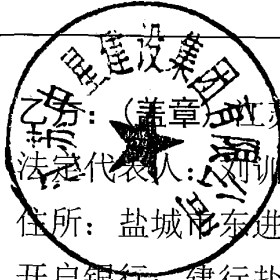 江苏中星建设集团有限公司
乙方：（盖章）江苏
法定代表人：刘训
住所：盐城市东进
开户银行：建行盐